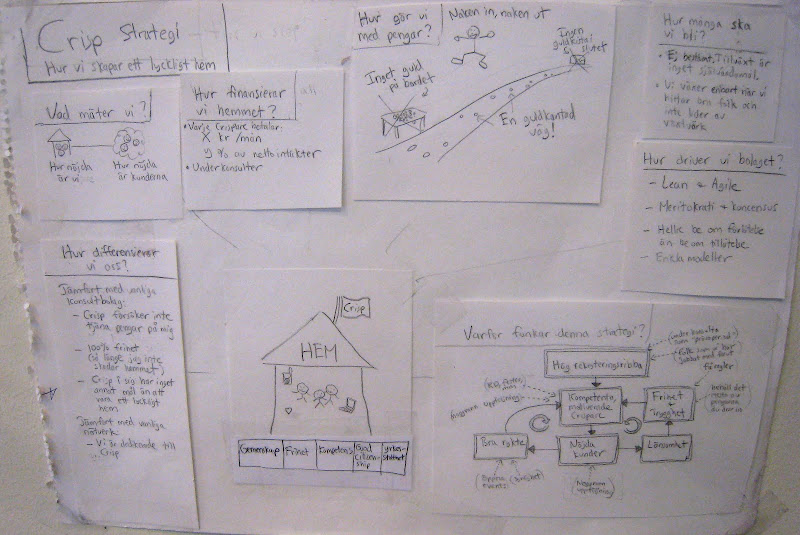 Crisp Strategi
Hur vi skapar ett lyckligt hem
Vad mäter vi?
Hur nöjda
är vi
Hur nöjda
är kunderna
Hur finansierar
vi hemmet?
• Varje Crispare betalar:
X kr/mån
y % av nettointäkter
• Underkonsulter
Hur gör vi
med pengar?
Naken in, naken ut
Inget guld
på bordet
Ingen
guldkittel
i slutet
En guldkantad
väg!
Hur många ska
vi bli?
• Ej bestämt. Tillväxt är
inget självändamål.
• Vi växer enbart när vi
hittar bra folk och
inte lider av
växtvärk
Hur driver vi bolaget?
- Lean & Agile
- Meritokrati & koncensus
- Hellre be om förlåtelse
än be om tillåtelse
- Enkla modeller
Hur differensierar
vi oss?
Jämfört med vanliga
konsultbolag:
- Crisp försöker inte
tjäna pengar på mig
- 100% frihet
(så länge jag inte
skadar hemmet)
- Crisp i sig har inget
annat mål än att
vara ett lyckligt
hem
Jämfört med vanliga
nätverk
- Vi är dedikerade till
Crisp
Crisp
HEM
Gemenskap
Frihet
Kompetens
Good
citizen-
ship
Yrkes-
stolthet
Varför funkar denna strategi?
Hög rekryteringsribba
Kompetenta,
motiverade
Crispare
Frihet
+
Trygghet
fåglar
behåll det
mesta av
pengarna
du drar in
Bra rykte
Nöjda
kunder
Lönsamhet
(öppna
events)
(Noggrann
uppföljning)